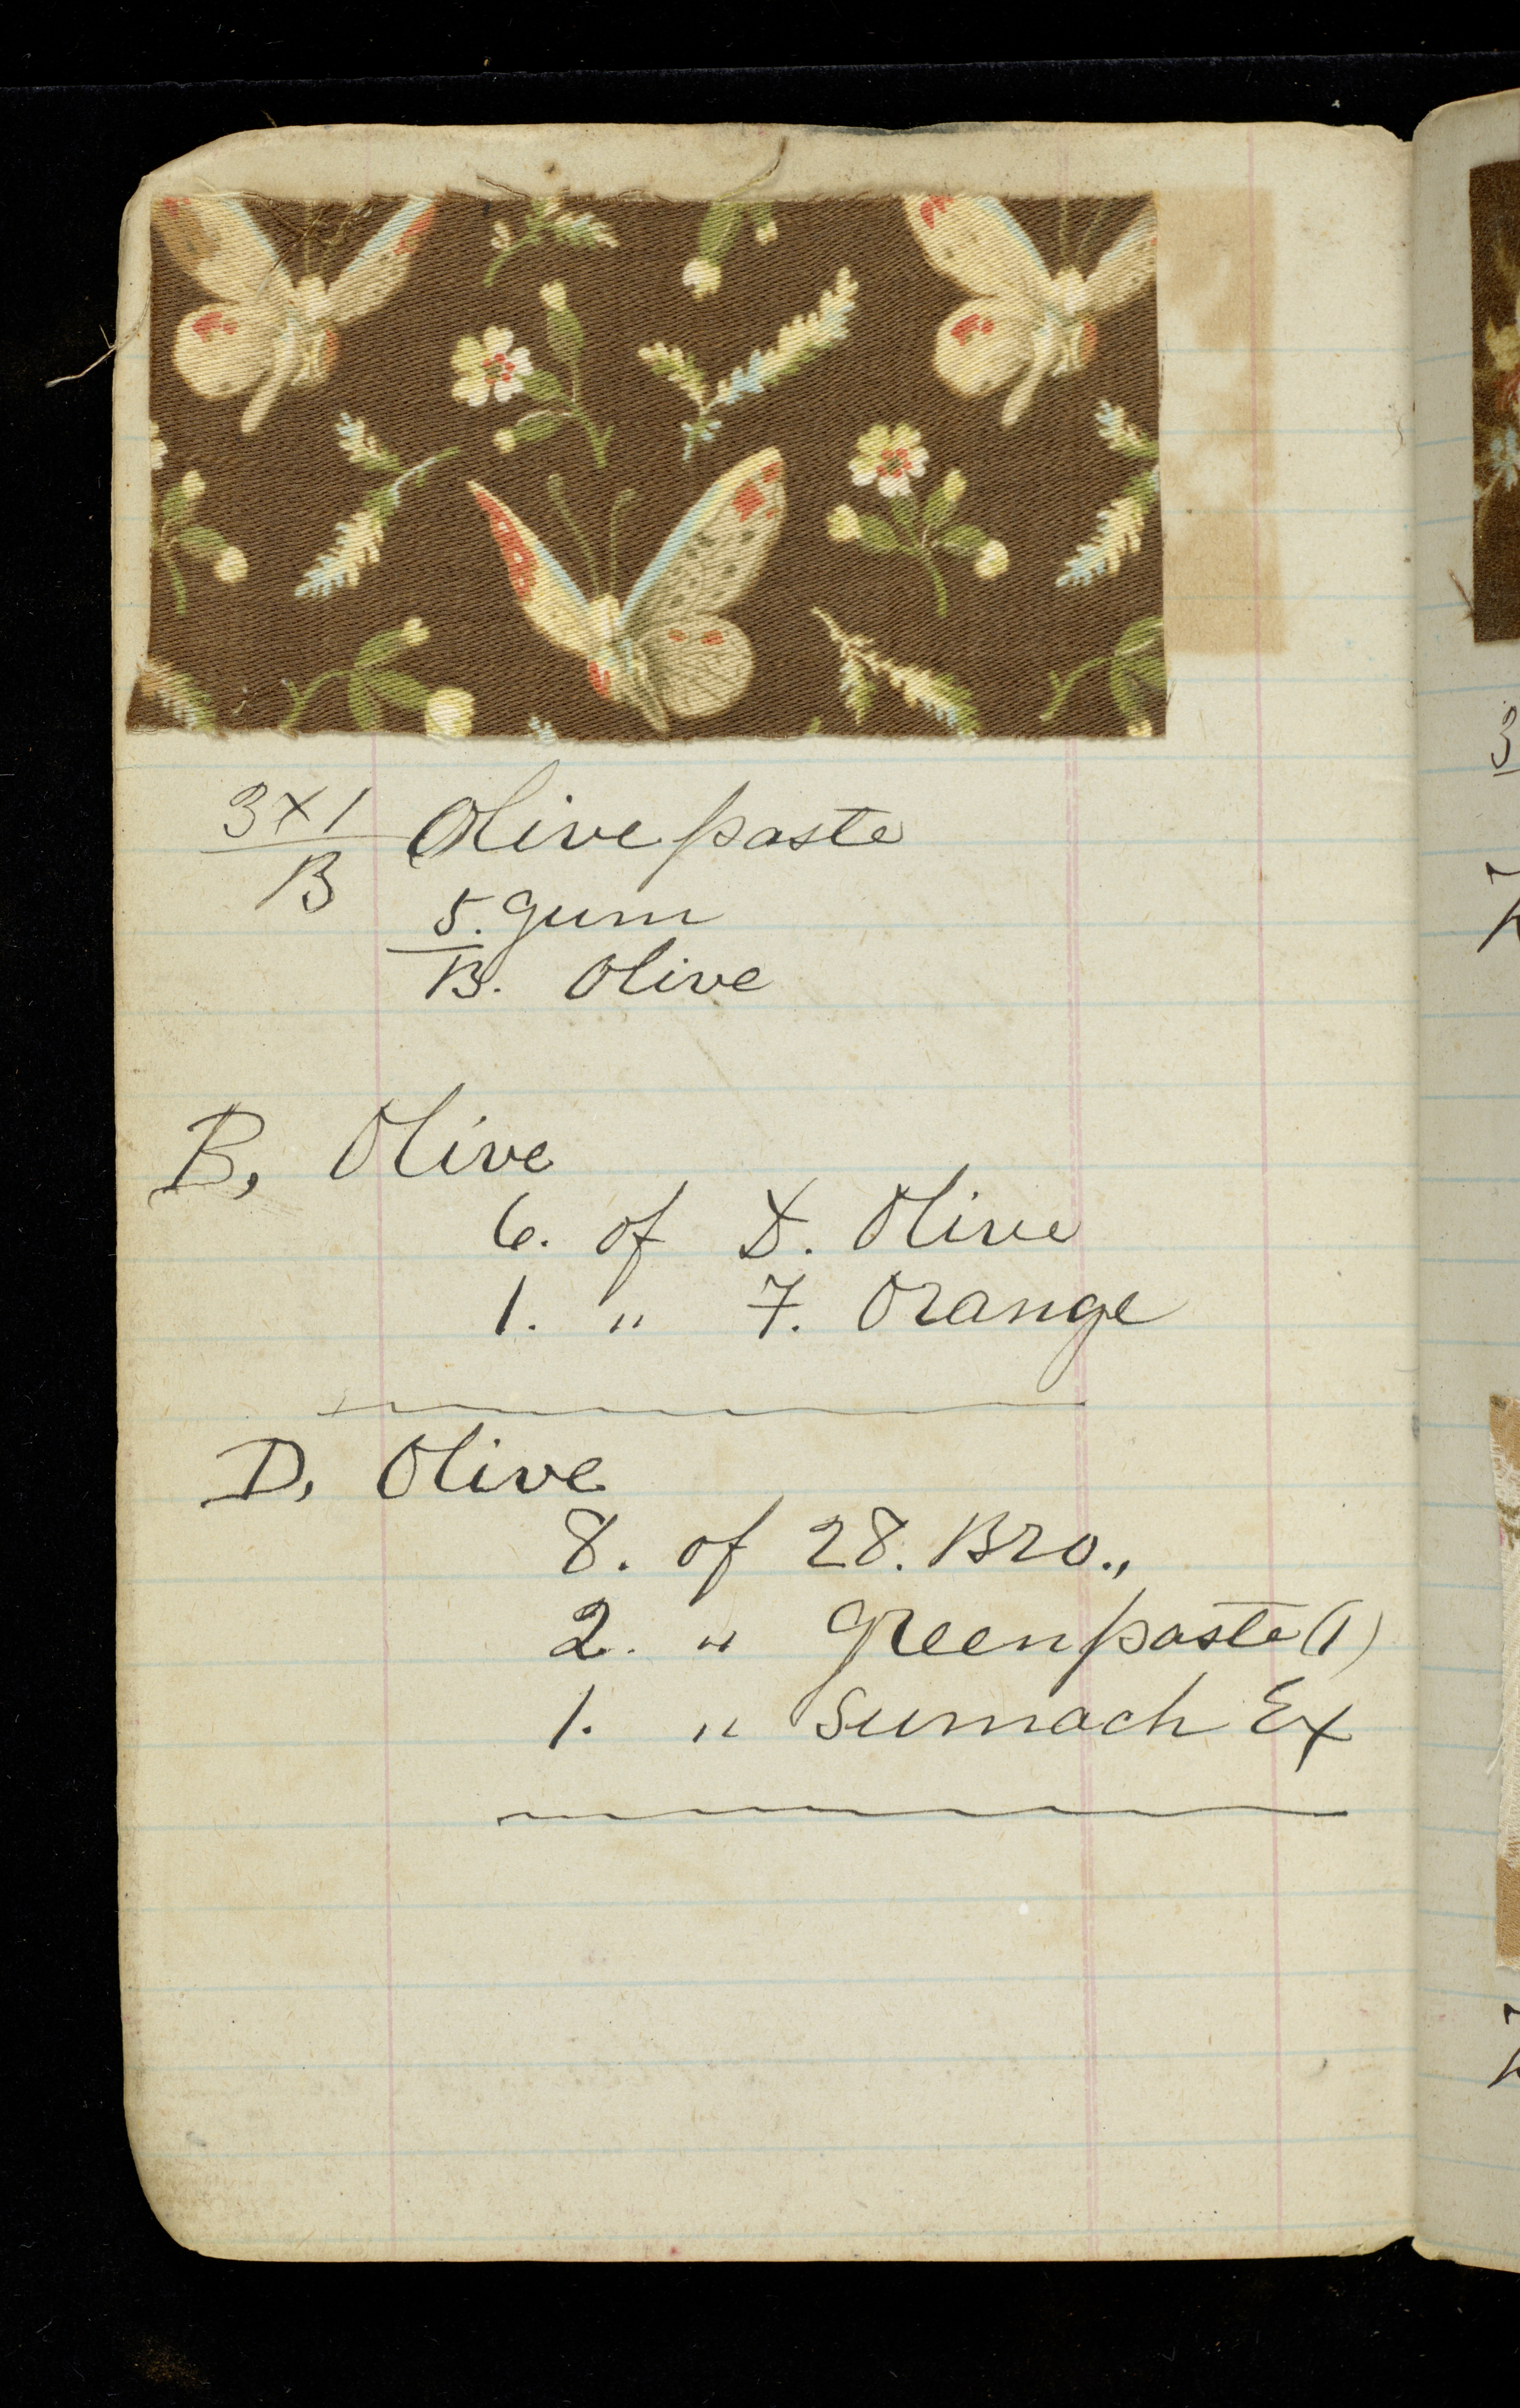 3x1/B Olive paste
5. Gum
B. Olive
B, Olive
6. of D. Olive
1. " 7. Orange
D, Olive
8. of 28. Bro.,
2. " Green paste (1)
1. " Sumach Ex